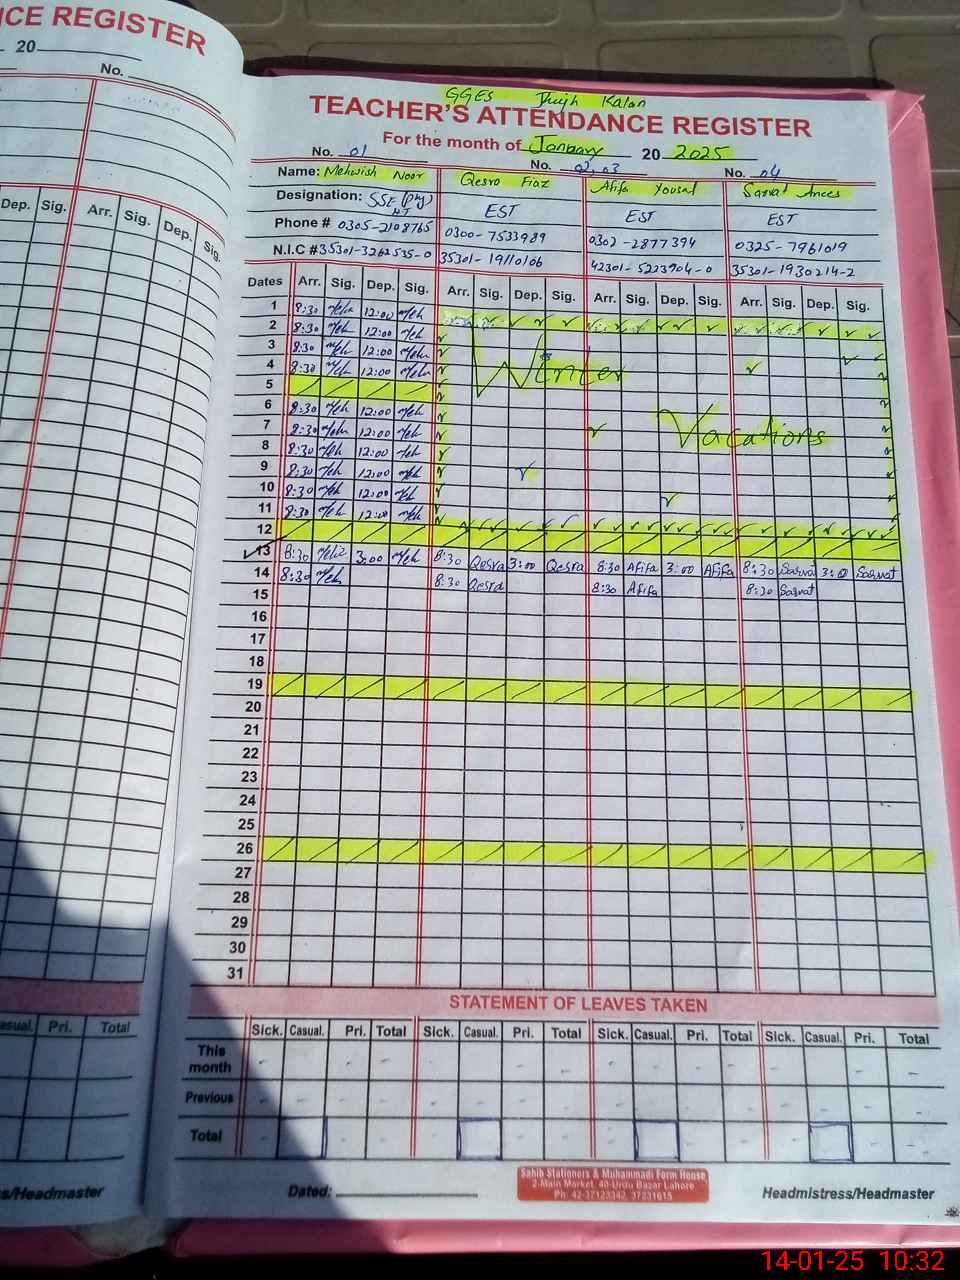 CE REGISTER
20
No.
Dep. Sig. Arr. Sig. Dep. Sig.
asual. Pri. Total
s/Headmaster
GGES Jhujh Kalan
TEACHER'S ATTENDANCE REGISTER
For the month of January 20 2025
No. 01 No. 02, 03 No. 04
Name: Mehwish Noor Qesra Fiaz Afifa Yousaf Sarwat Anees
Designation: SSE (Phy) EST EST EST
HT
Phone # 0305-2108765 0300-7533989 0302-2877394 0325-7961019
N.I.C # 35301-3262535-0 35301-19110106 42301-5223904-0 35301-1930214-2
Dates Arr. Sig. Dep. Sig. Arr. Sig. Dep. Sig. Arr. Sig. Dep. Sig. Arr. Sig. Dep. Sig.
1 8:30 Meh 12:00 Meh
2 8:30 Meh 12:00 Meh
3 8:30 Meh 12:00 Meh
4 8:30 Meh 12:00 Meh
Winter
5
6 8:30 Meh 12:00 Meh
7 8:30 Meh 12:00 Meh
Vacations
8 8:30 Meh 12:00 Meh
9 8:30 Meh 12:00 Meh
10 8:30 Meh 12:00 Meh
11 8:30 Meh 12:00 Meh
12
13 8:30 Meh 3:00 Meh 8:30 Qesra 3:00 Qesra 8:30 Afifa 3:00 Afifa 8:30 Sarwat 3:00 Sarwat
14 8:30 Meh 8:30 Qesra 8:30 Afifa 8:30 Sarwat
15
16
17
18
19
20
21
22
23
24
25
26
27
28
29
30
31
STATEMENT OF LEAVES TAKEN
Sick. Casual. Pri. Total Sick. Casual. Pri. Total Sick. Casual. Pri. Total Sick. Casual. Pri. Total
This month - - - - - - - - - - - -
Previous - - - - - - - - - - - -
Total - - - - - - - - - - - -
Dated:
Sahib Stationers & Muhammadi Form House
2-Main Market, 40-Urdu Bazar Lahore
Ph: 42-37123342, 37231615
Headmistress/Headmaster
14-01-25 10:32